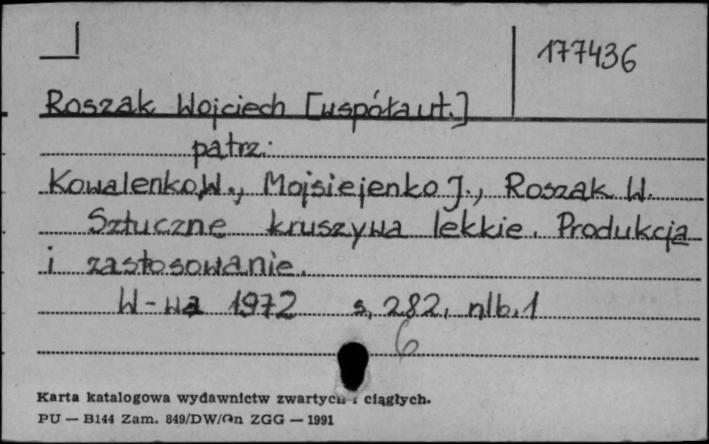 177436
Roszak Wojciech [współaut.]
patrz:
Kowalenko W., Mojsiejenko J., Roszak W.
Sztuczne kruszywa lekkie. Produkcja
i zastosowanie.
W-wa 1972 s. 282, nlb. 1
6
Karta katalogowa wydawnictw zwartych i ciągłych.
PU — B144 Zam. 849/DW/On ZGG — 1991